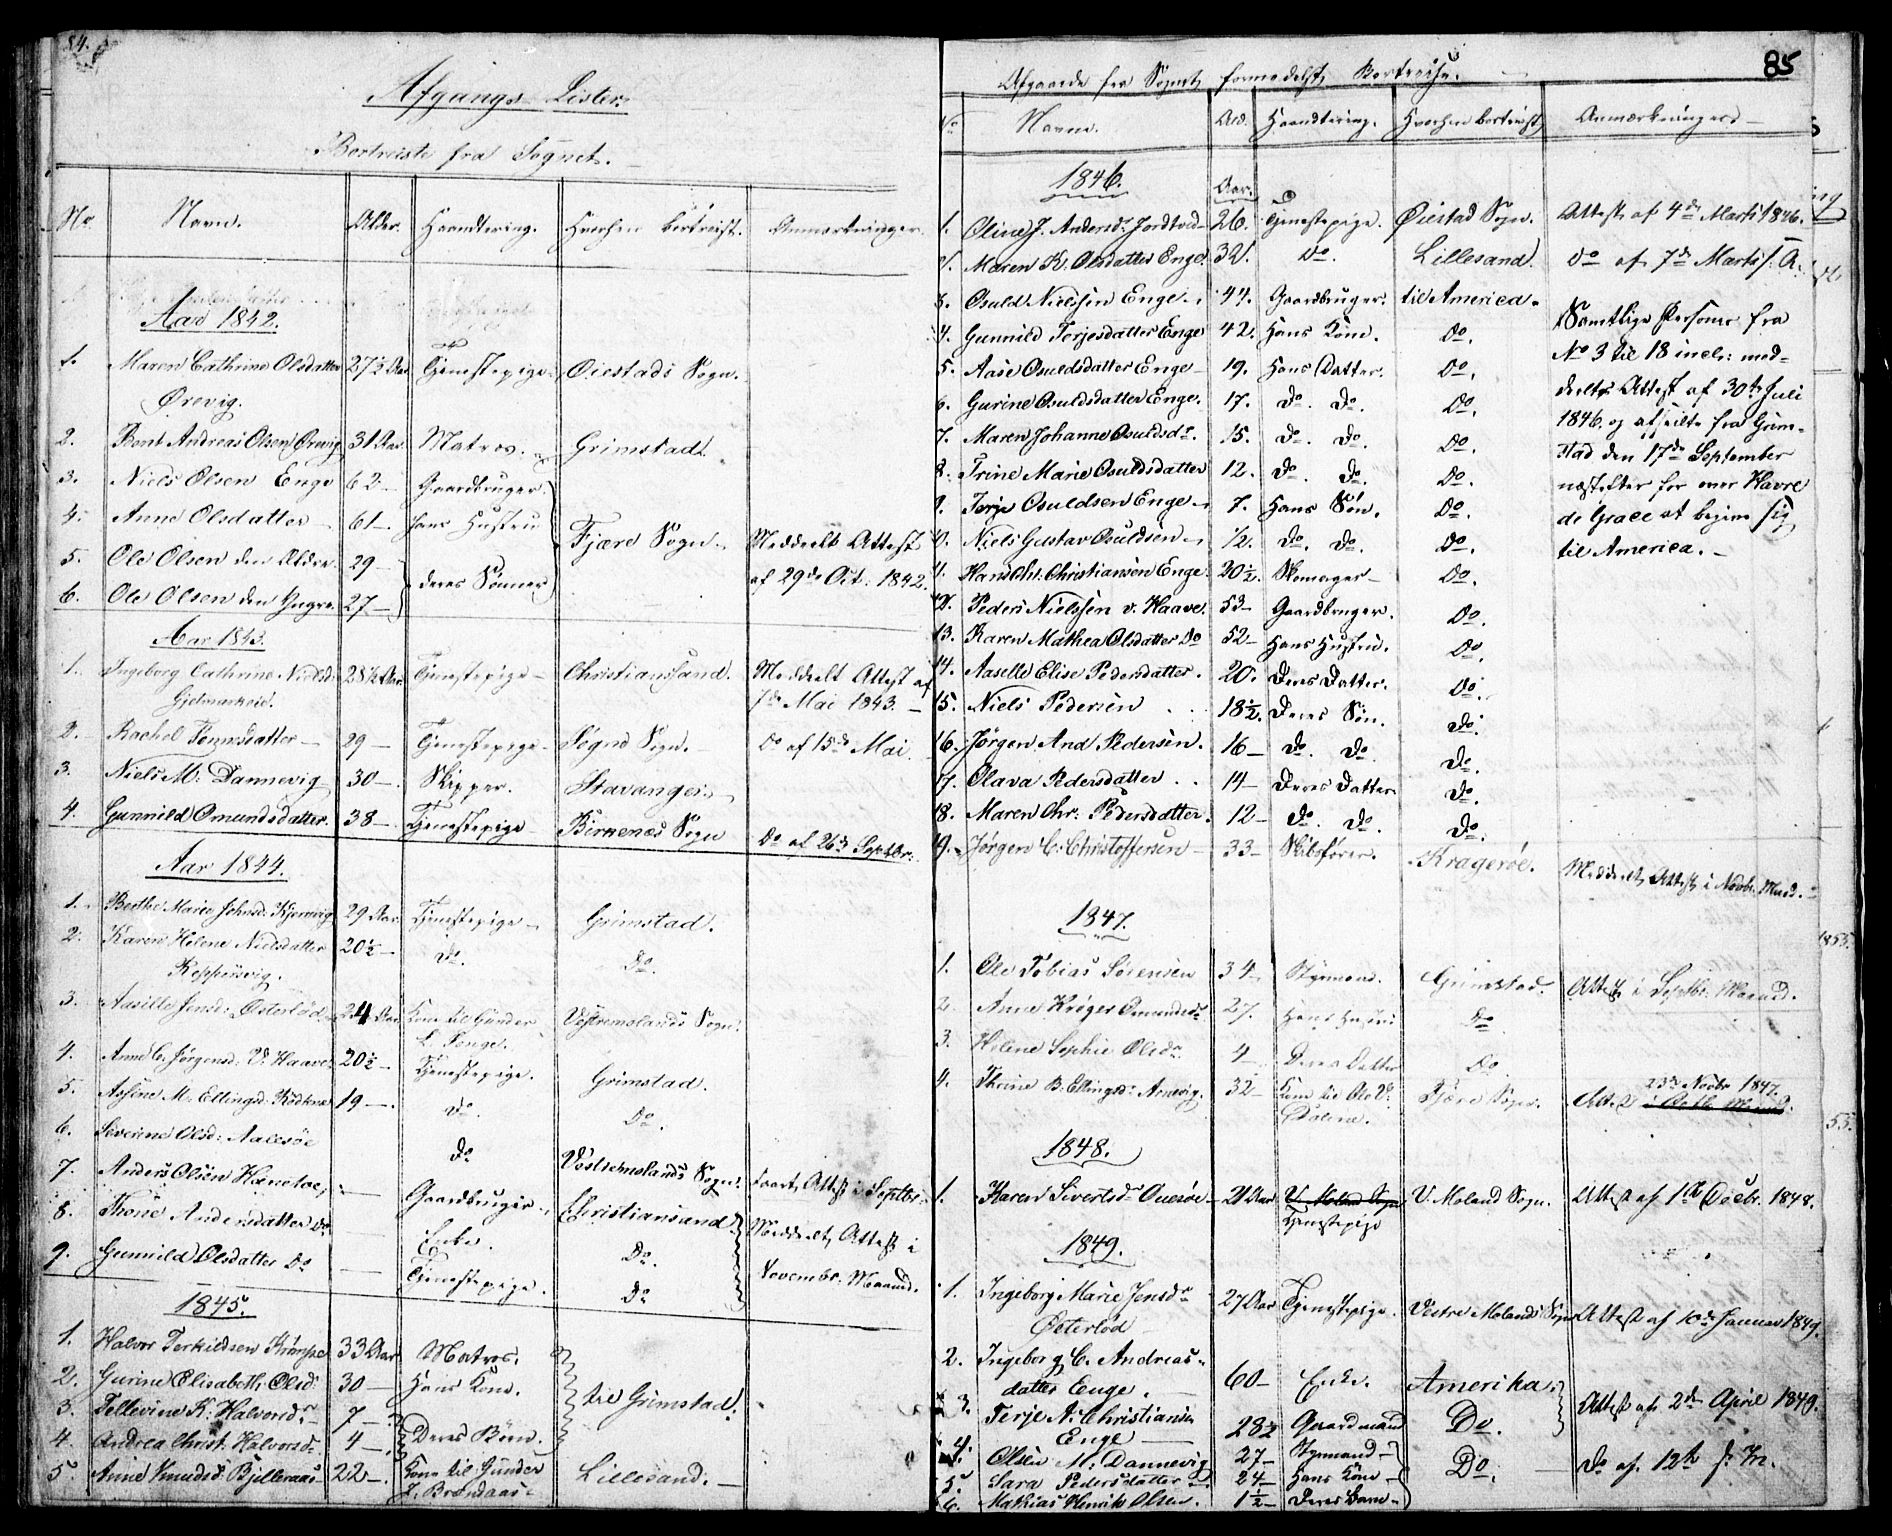 84.
Afgangs Lister.
Bortreiste fra Sognet.
No Navn. Alder. Haandtering. Hvorhen bortreist. Anmærkninger.
Aar 1842.
1. Maren Cathrine Olsdatter 27½ Aar Tjenestepige. Øiestads Sogn.
Ørevig.
2. Bent Andreas Olsen Ørevig 31 Aar Matros. Grimstad.
3. Niels Olsen Enge 62 — Gaardbruger.
4. Anne Olsdatter — 61 — hans Hustru Fjære Sogn. Meddeelt Attest
5. Ole Olsen den Ældre. 29 — deres Sønner af 29de Oct. 1842.
6. Ole Olsen den Yngre. 27 —
Aar 1843.
1. Ingeborg Cathrine Nielsd. 28½ Aar Tjenestepige — Christiansand. Meddeelt Attest af
7de Mai 1843. —
2. Rachel Tønnsdatter — 29 — Tjenestepige — Søgne Sogn. — Do af 15de Mai
3. Niels M: Dannevig 30 — Skipper. Stavanger.
4. Gunnild Omundsdatter. 38 — Tjenestepige — Birkenæs Sogn Do af 26de Septbr.
Aar 1844.
1. Berthe Marie Johnsd. Kjerrevig 29 Aar Tjenestepige — Grimstad.
2. Karen Helene Nielsdatter 20½ — Do. Do.
3. Aasille Jensd: Østerlød 24 Aar Kone til Gunder Vestremolands Sogn.
4. Anne C. Jørgensd. V. Haave 20½ — Tjenestepige. Grimstad.
5. Assine M. Ellingsd. 19 —. Do. Do.
6. Severine Olsd: Aalesøe Do Vestremolands Sogn.
7. Anders Olsen — Gaardbruger. Christiansand Meddeelt Attest i
8. Thone Andersdatter Do — Enke. Do. Novembr. Maaned.
9. Gunnild Olsdatter Do — Tjenestepige. Do
1845.
1. Halvor Terkildsen 33 Aar Matros.
2. Gurine Elisabeth Olsd: 30 — Hans Kone. til Grimstad.
3. Tellevine K: Halvorsdr — 7 —
4. Andrea Christ. Halvorsdr. 4 —. Deres Børn.
5. Anne Knudsd: 22 —. Kone til Gunder Lillesand. —
85
Afgaaede fra Sognet formedelst Bortreise.
No Navne. Ald. Haandtering. Hvorhen bortreist Anmærkninger —
1846. Aar.
1. Oline J. Andersdr. 26. Tjenestepige. Øiestad Sogn. Attest af 4de Marts 1846.
2. Maren K. Olsdatter Enge. 32. Do. Lillesand. Do af 7de Marts s. A.
3. Osuld Nielssen Enge. 44. Gaardbruger. til America. Samtlige Personer fra
4. Gunnild Terjesdatter Enge 42. Hans Kone. Do. No 3 til 18 incl: med-
5. Aase Osuldsdatter Enge — 19. Hans Datter. Do. deeltes Attest af 30te Juli
6. Gurine Osuldsdatter Enge. 17. Do. Do. Do. 1846 og afseilte fra Grim-
7. Maren Johanne Osuldsdr. 15. Do. Do. Do. stad den 17de September
8. Trine Marie Osuldsdatter 12. Do. Do. Do. næstefter for over Havre
9. Terje Osuldsen Enge — 7. Hans Søn. Do. de Grace at begive sig
10. Niels Gustav Osuldsen — ½. Do. Do. Do. til America. —
11. Hans Chr. Christiansen Enge. 20½. Skomager — Do.
12. Peder Nielssen v. Haave. 53 — Gaardbruger. Do.
13. Karen Mathea Olsdatter Do 52 — Hans Hustru. Do.
14. Aaselle Elise Pedersdatter. 20. Deres Datter. Do.
15. Niels Pedersen . . 18½. Deres Søn. Do.
16. Jørgen And Pedersen. 16 — Do. Do. Do.
17. Olava Pedersdatter . . 14 — Deres Datter Do.
18. Maren Chr: Pedersdatter. 12 — Do. Do. Do.
19. Jørgen C. Christoffersen — 33 — Skibsfører. Kragerøe. Meddeelt Attest i Novbr. Maad. —
1847.
1. Ole Tobias Sørensen 34 — Styrmand. Grimstad. Attest i Septbr. Maaned.
2. Anne Krøger Omundsdr 27. Hans Hustru Do
3. Helene Sophie Olsdr. 4 Deres Datter Do
23de Novbr 1847.
4. Thrine B. Ellingsdr. 32 — Kone til Ole Fjære Sogn. Attest
1848.
1. Karen Sivertsdr — 21 Aar V. Moland Sogn V. Moland Sogn. Attest af 1te Decbr. 1848.
Tjenestepige
1849.
1. Ingeborg Marie Jensdr 27 Aar Tjenestepige. Vestre Molands Sogn Attest af 10de Januar 1849.
Østerlød —
2. Ingeborg C. Andreas-
datter Enge. — 60 — Enke. Amerika. Attest af 2de April 1849.
3. Terje A. Christiansen 28½ Gaardmand Do.
Enge —
4. Olsen M. Dannevig 27 — Styrmand — Do. Do af. 12te s. M.
5. Sara Pedersdatter 24 — Hans Kone —
6. Mathias Henrik Olsen. 1½ — Deres Barn —